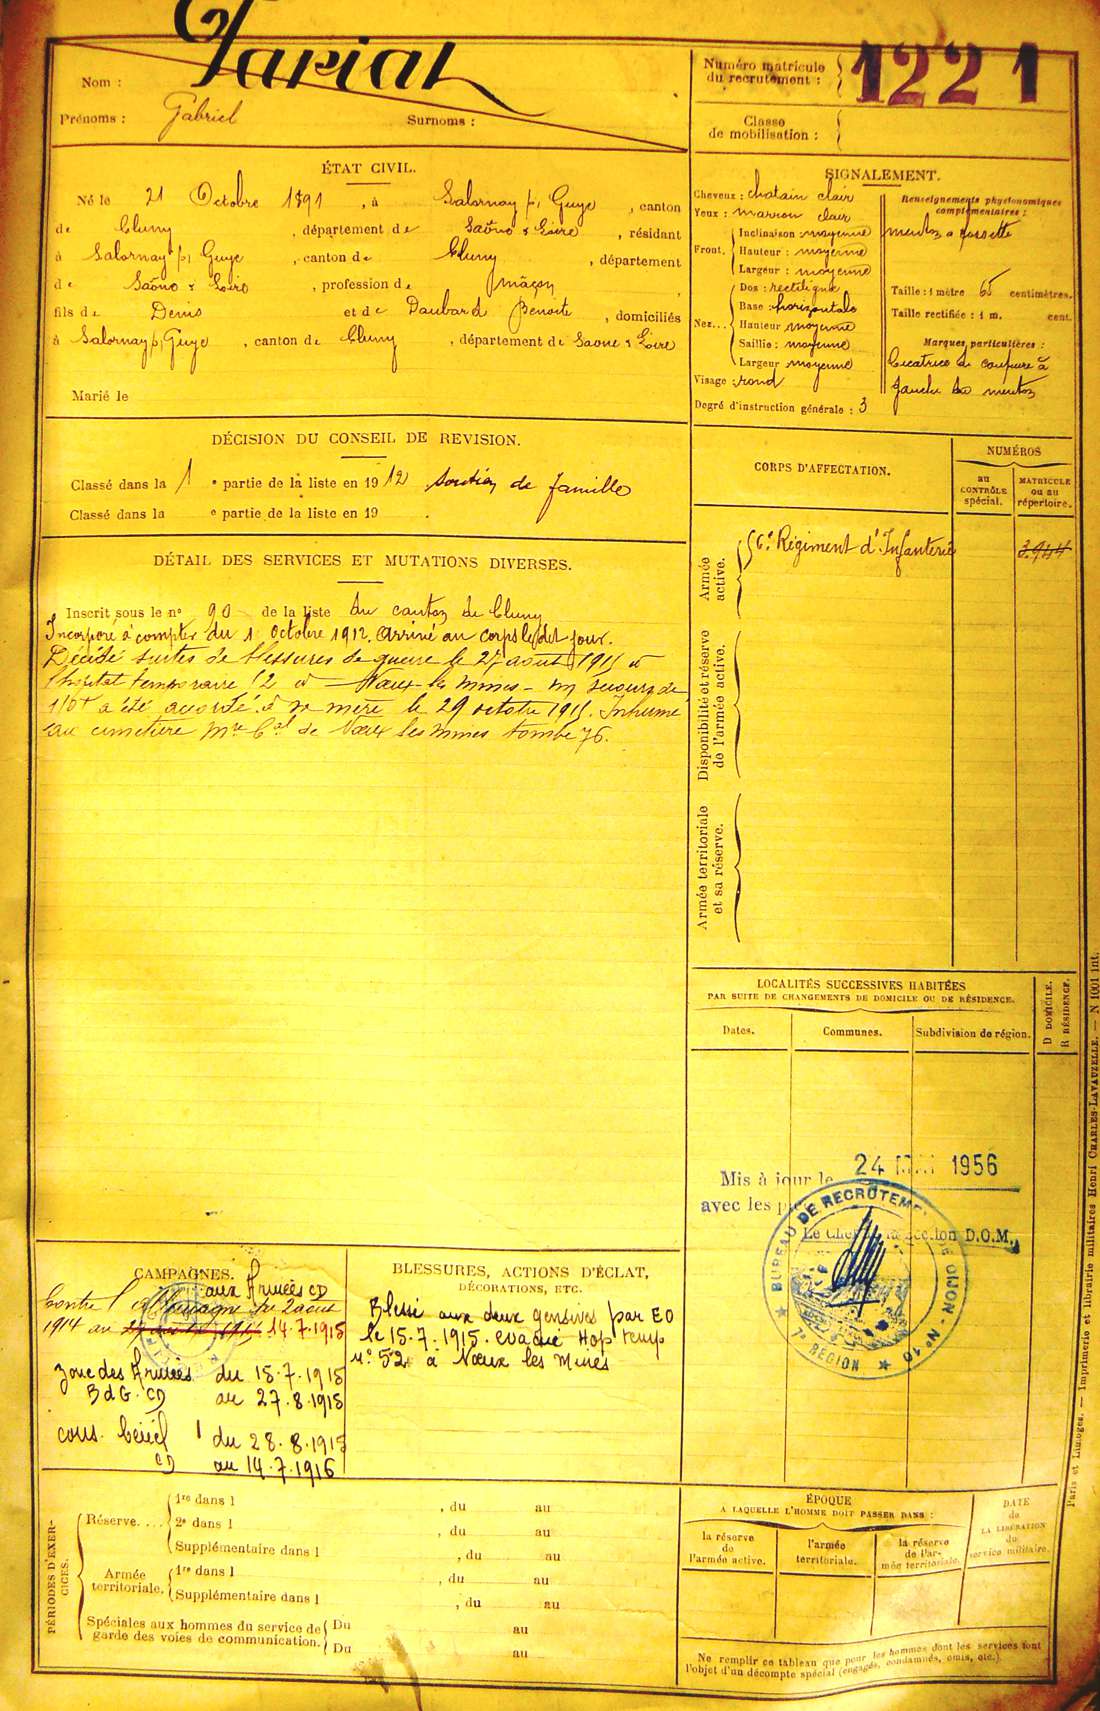 Nom : Tarial
Prénoms : Gabriel Surnoms :
Numéro matricule
du recrutement : 1221
Classe
de mobilisation :
ÉTAT CIVIL.
Né le 21 Octobre 1891, à Salornay s/ Guye, canton
de Cluny, département de Saône & Loire, résidant
à Salornay s/ Guye, canton de Cluny, département
de Saône & Loire, profession de maçon,
fils de Denis et de Daubard Benoite, domiciliés
à Salornay s/ Guye, canton de Cluny, département de Saone & Loire
Marié le
SIGNALEMENT.
Cheveux : chatain clair
Yeux : marron clair
Front. Inclinaison : moyenne
Hauteur : moyenne
Largeur : moyenne
Nez... Dos : rectiligne
Base : horizontale
Hauteur moyenne
Saillie : moyenne
Largeur moyenne
Visage : rond
Degré d'instruction générale : 3
Renseignements physionomiques
complémentaires :
menton a fossette
Taille : 1 mètre 65 centimètres.
Taille rectifiée : 1 m. cent.
Marques particulières :
Cicatrice de coupure à
gauche du menton
DÉCISION DU CONSEIL DE REVISION.
Classé dans la 1 e partie de la liste en 1912 soutien de famille
Classé dans la e partie de la liste en 19 .
DÉTAIL DES SERVICES ET MUTATIONS DIVERSES.
Inscrit sous le n° 90 de la liste du canton de Cluny
Incorporé à compter du 1 octobre 1912. Arrivé au corps le dit jour.
Décédé suites de blessures de guerre le 27 aout 1915 à
l'hopital temporaire 12 à Noeux-les mines - un secours de
150f a été accordé à sa mère le 29 octobre 1915. Inhumé
au cimetière de Noeux les mines tombe 76.
CORPS D'AFFECTATION.
NUMÉROS
au
CONTRÔLE
spécial.
MATRICULE
ou au
répertoire.
Armée
active.
Régiment d'Infanterie 3.944
Disponibilité et réserve
de l'armée active.
Armée territoriale
et sa réserve.
LOCALITÉS SUCCESSIVES HABITÉES
PAR SUITE DE CHANGEMENTS DE DOMICILE OU DE RÉSIDENCE.
Dates. Communes. Subdivision de région.
D DOMICILE.
R RÉSIDENCE.
Mis à jour le 24 MAI 1956
avec les
Le Chef de Section D.O.M.
BUREAU DE RECRUTEMENT DE DIJON - N° 10
7e RÉGION
CAMPAGNES.
aux Armées CD
Contre l'Allemagne du 2 aout
1914 au 27 aout 1915 14.7.1915
zone des Armées du 15.7.1915
BdG. CD au 27.8.1915
du 28.8.1915
CD au 14.7.1916
BLESSURES, ACTIONS D'ÉCLAT,
DÉCORATIONS, ETC.
Blessé aux deux genoux par EO
le 15-7.1915. evacué Hop temp
n° 52 à Nœux les Mines
PÉRIODES D'EXER-
CICES.
Réserve.... 1re dans l , du au
2e dans l , du au
Supplémentaire dans l , du au
Armée
territoriale. 1re dans l , du au
Supplémentaire dans l , du au
Spéciales aux hommes du service de
garde des voies de communication. Du au
Du au
ÉPOQUE
A LAQUELLE L'HOMME DOIT PASSER DANS :
la réserve
de
l'armée active.
l'armée
territoriale.
la réserve
de l'ar-
mée territoriale.
DATE
de
LA LIBÉRATION
du
service militaire.
Ne remplir ce tableau que pour les hommes dont les services font
l'objet d'un décompte spécial (engagés, condamnés, omis, etc.).
Paris et Limoges. — Imprimerie et librairie militaires Henri CHARLES-LAVAUZELLE. — N 1001 int.